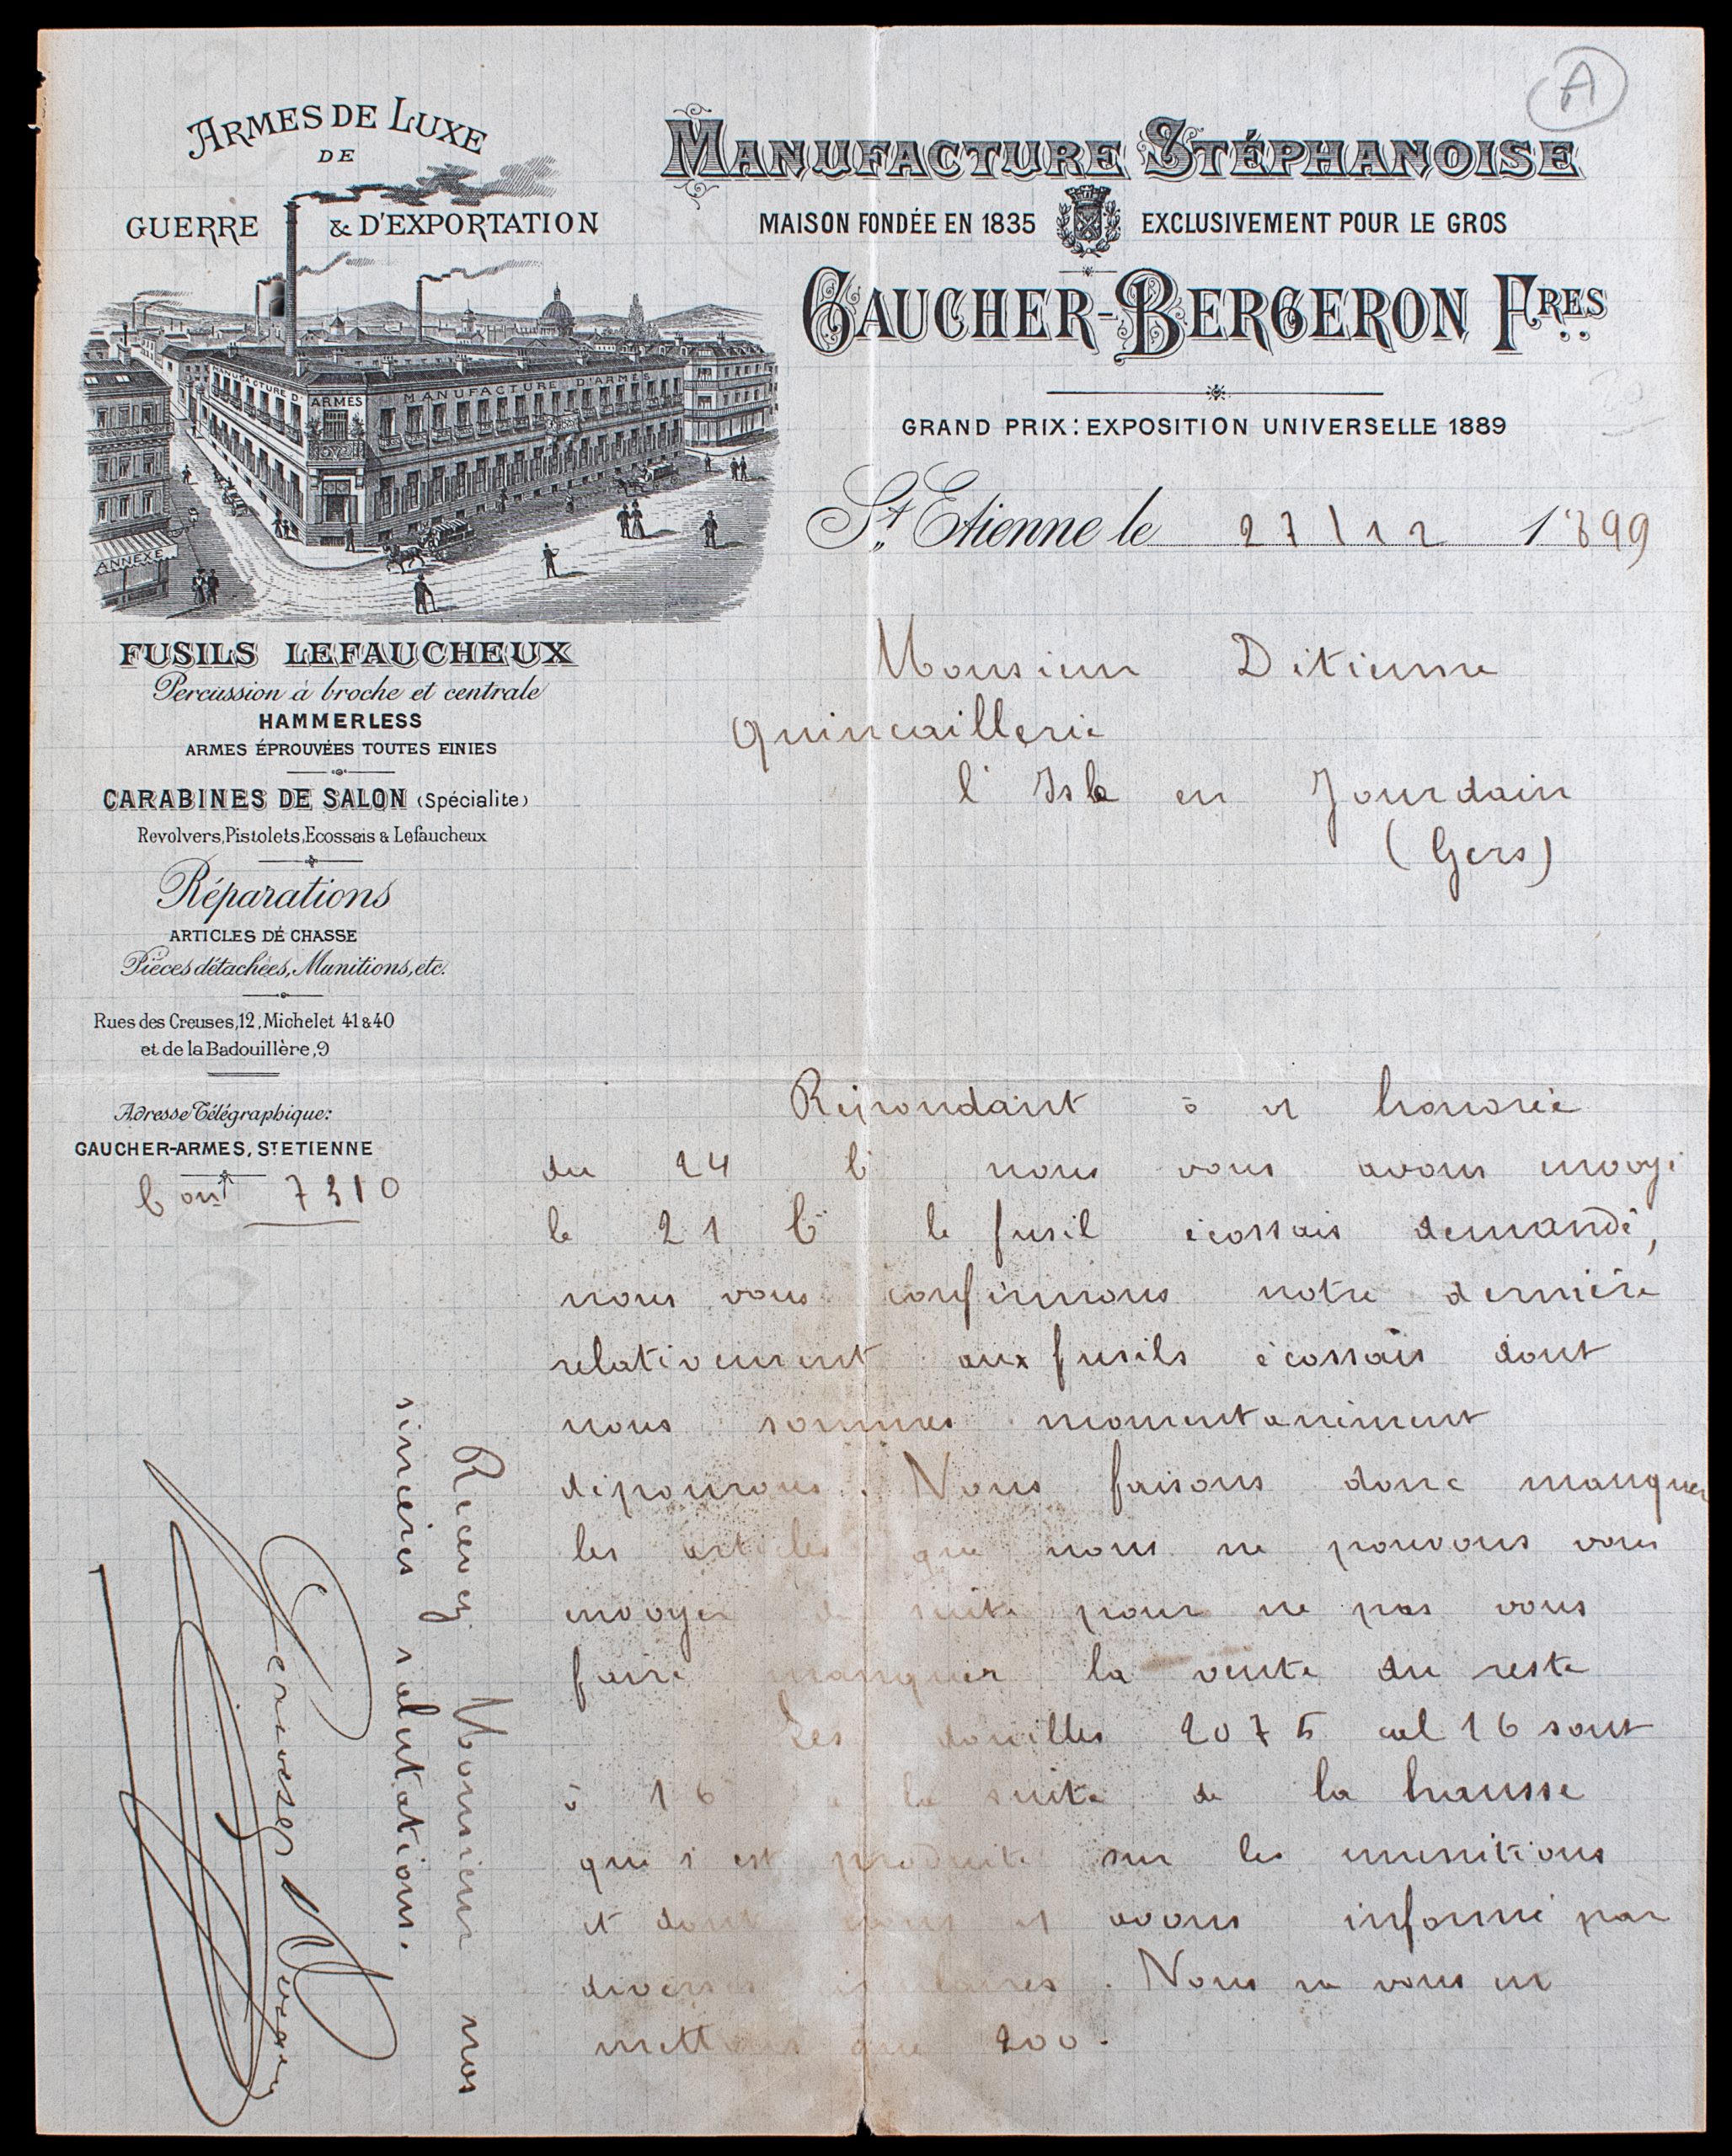 A
ARMES DE LUXE
DE
GUERRE & D'EXPORTATION
MANUFACTURE D'ARMES
MANUFACTURE D'ARMES
ANNEXE
MANUFACTURE STÉPHANOISE
MAISON FONDÉE EN 1835 EXCLUSIVEMENT POUR LE GROS
GAUCHER-BERGERON FRES
GRAND PRIX: EXPOSITION UNIVERSELLE 1889
St Etienne le 27/12 1899
FUSILS LEFAUCHEUX
Percussion à broche et centrale
HAMMERLESS
ARMES ÉPROUVÉES TOUTES FINIES
CARABINES DE SALON (Spécialite)
Revolvers, Pistolets, Ecossais & Lefaucheux
Réparations
ARTICLES DÉ CHASSE
Pièces détachées, Munitions, etc.
Rues des Creuses, 12, Michelet 41 & 40
et de la Badouillère, 9
Adresse Télégraphique:
GAUCHER-ARMES, ST ETIENNE
7310
Monsieur Ditienne
Quincaillerie
l'Isle en Jourdain
(Gers)
Répondant à v honorée
du 24 nous vous avons envoyé
le 21 le fusil écossais demandé,
nous vous confirmons notre dernière
relativement aux fusils écossais dont
nous sommes momentanément
dépourvus. Nous faisons donc manquer
les articles que nous ne pouvons vous
envoyer de suite pour ne pas vous
faire manquer la vente du reste
Les douilles 2075 cal 16 sont
à 16 à la suite de la hausse
qui s'est produite sur les munitions
et dont vous avons informé par
diverses circulaires. Nous ne vous en
mettons que 200.
Recevez Monsieur nos
sincères salutations.